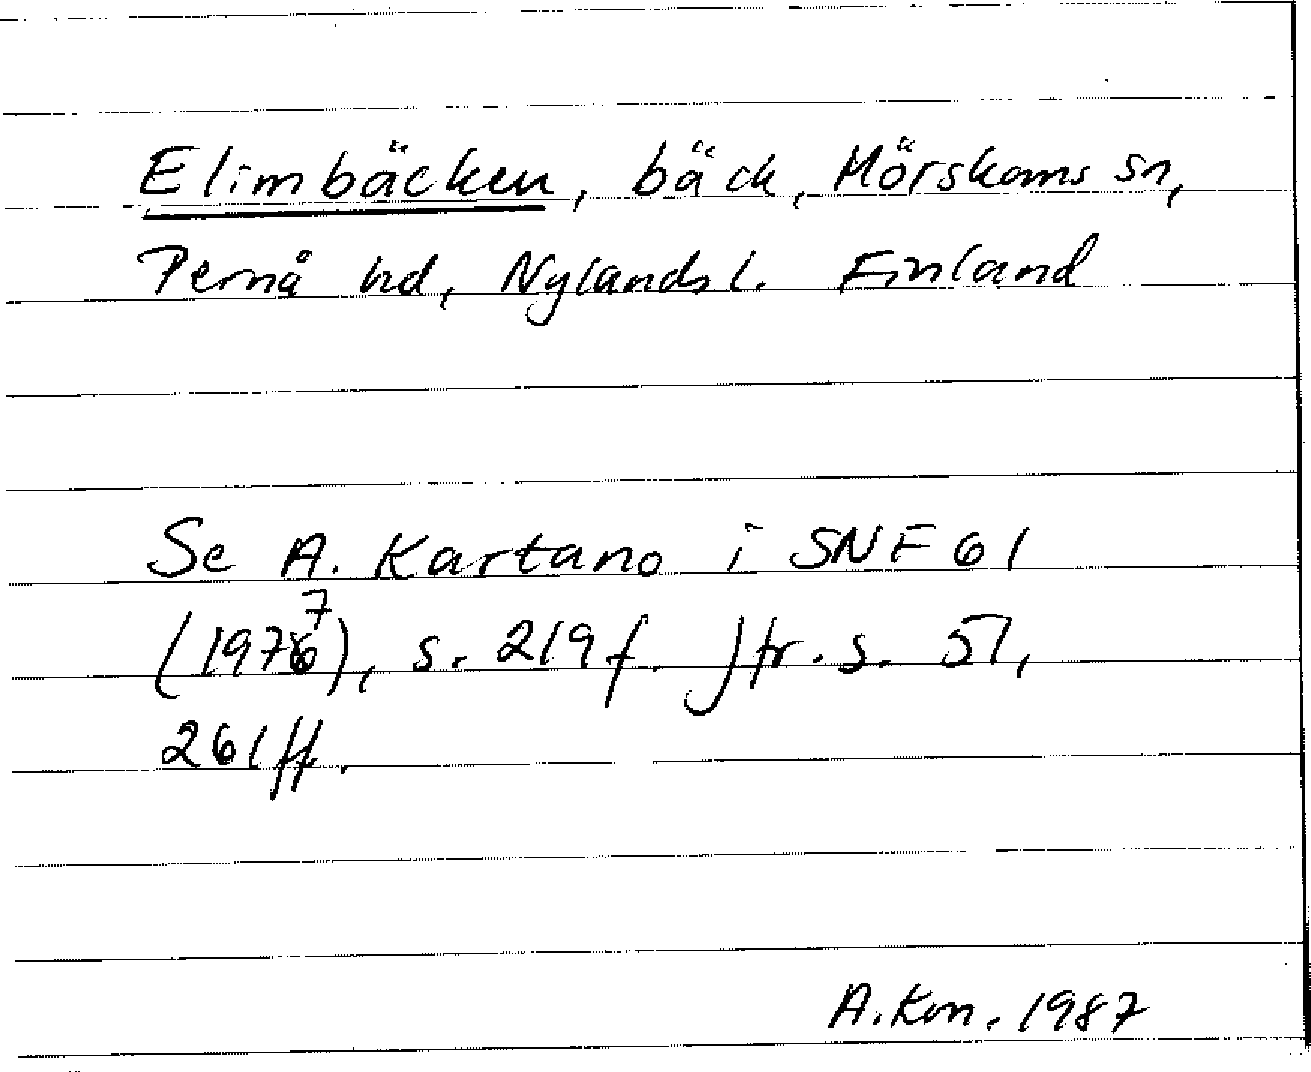 Elimbäcken, bäck, Mörskoms sn,
Pernå hd, Nylands l. Finland
Se A. Kartano i SNF 61
(1977), s. 219 f. Jfr. s. 51,
261 ff.
A. Kon. 1987